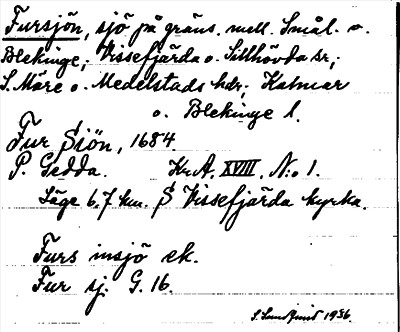 Fursjön, sjö på gräns. mell. Smål. o.
Blekinge; Vissefjärda o. Sillhövda sr;
S. Möre o. Medelstads hdr; Kalmar
o. Blekinge l.
Fur Siön, 1684.
P. Gedda. Kr.A. XVIII. N:o 1.
Läge 6.7 km. S Vissefjärda kyrka.
Furs insjö ek.
Fur sj. G. 16.
S. Lundqvist 1936.